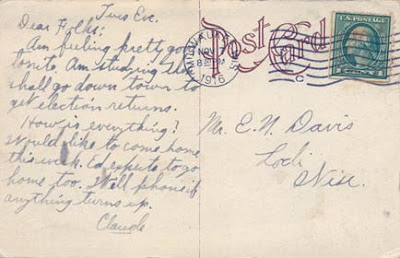 Tues Eve.
Dear Folks:
Am feeling pretty good
tonite. Am studying. Also
shall go down town to
get election returns.
How is everything?
Would like to come home
this week. Ed expects to go
home too. Will phone if
anything turns up.
Claude
Post Card
MILWAUKEE, WIS.
NOV 7
8 PM
1916
U.S. POSTAGE
Mr. E. N. Davis
Lodi
Wisc.